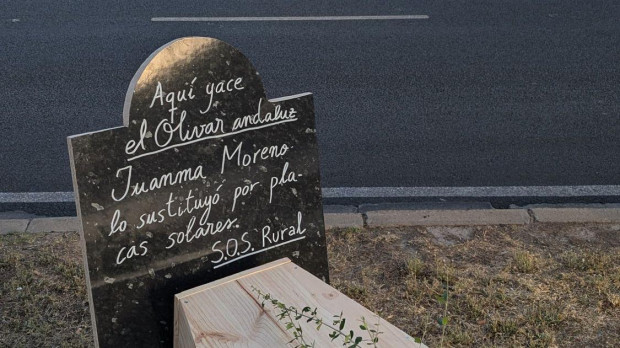 Aquí yace
el Olivar andaluz
Juanma Moreno
lo sustituyó por pla-
cas solares.
S.O.S. Rural